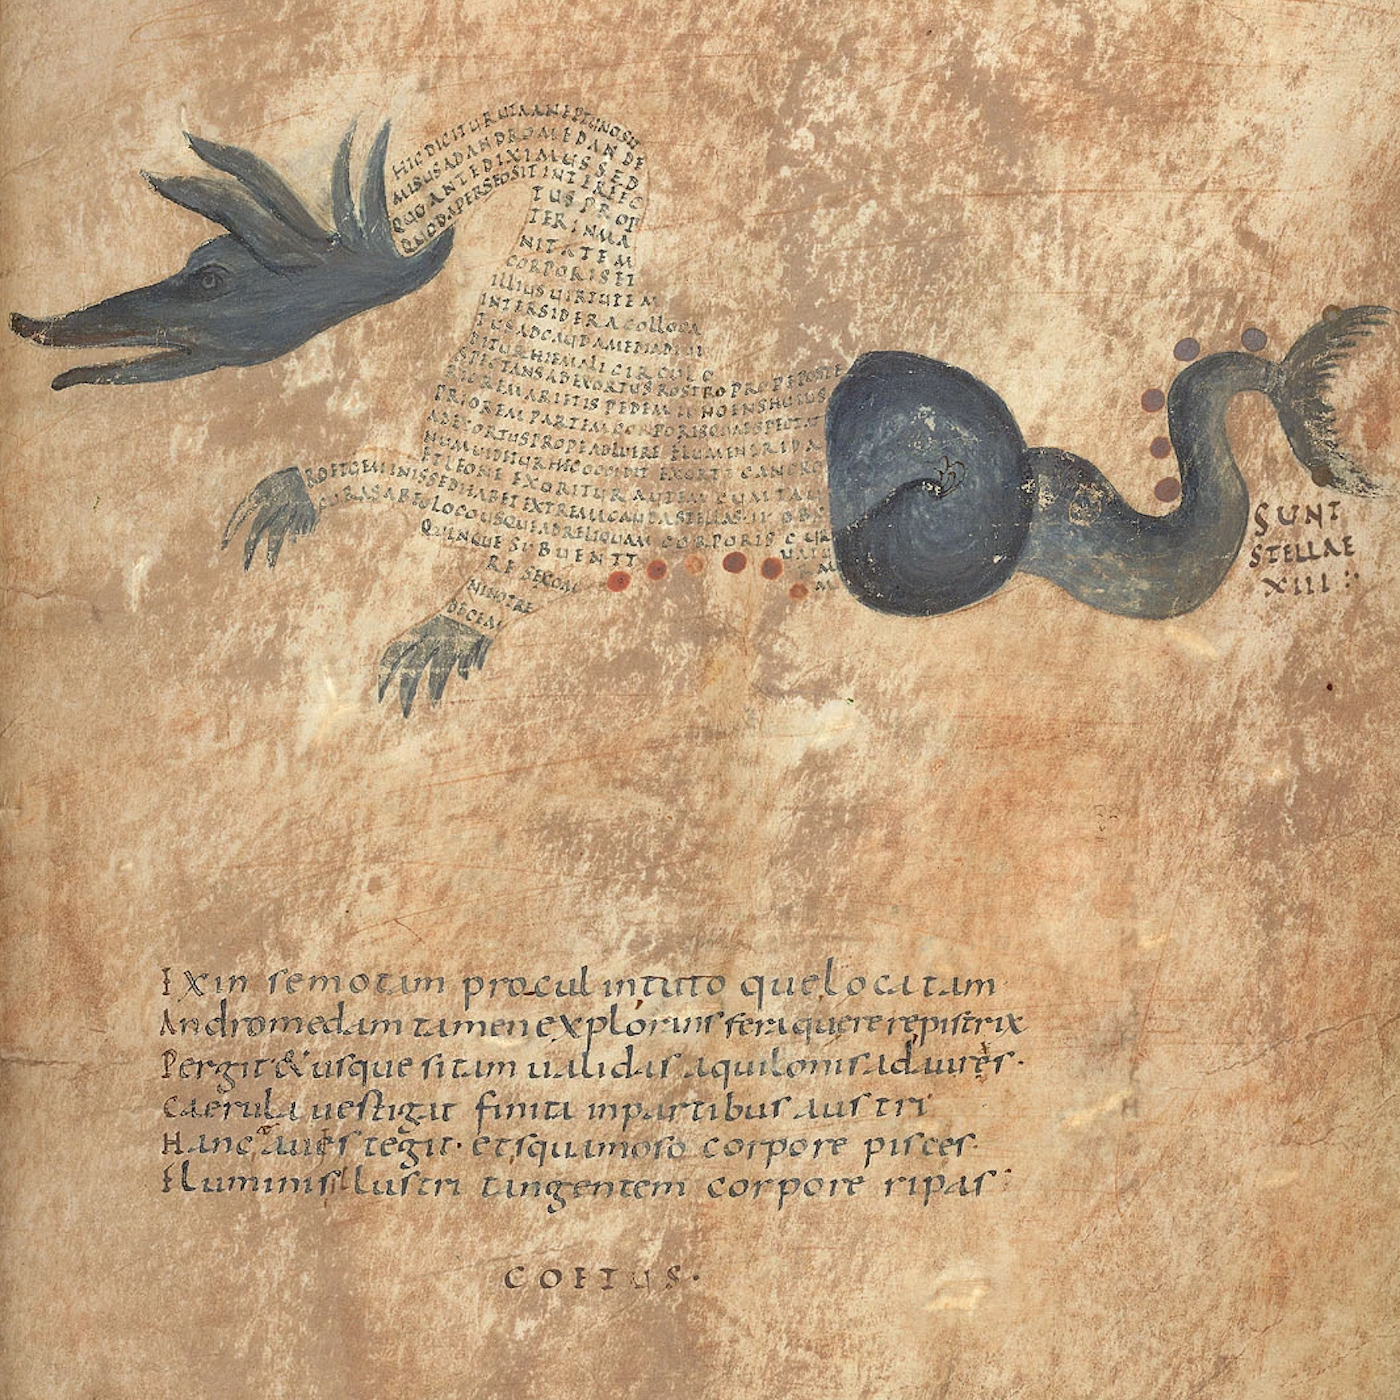 HIC DICITUR UIAANEPTUNOSU
MISUSADANDROMEDAN DE
QUO ANTEDIXIMUS SED
QUODAPERSEOSIT INTERFEC
TUS PROP
TER INMA
NITATEM
CORPORIS ET
ILLIUS UIRTUTEM
INTERSIDERA COLLOCA
TUSADCAUDAMEDIADIUI
DITUR HIEMALI CIRCULO
SPECTANS ADEXORTUS ROSTRO PROPE POSTE
RIOREM ARIETIS PEDEM
PRIOREM PARTEM CORPORISQUAESPECTAT
ADEXORTUSPROPEADLUERE FLUMEN ERIDA
NUM UIDITUR HIC OCCIDIT EXORTO CANCRO
ET LEONE EXORITUR AUTEM CUM TAU
ROETGEMINISSEDHABETEXTREMACAUDASTELLAS II OBS
CURASABEOLOCOUSQUEADRELIQUAM CORPORIS CUR
QUINQUE SUBUENT
UATU
RAM
RE SECOM
M
NINOTRE
DECEM
SUNT
STELLAE
XIII
I Xin semotam procul intuto quelocatam
Andromedam tamen explorans fera querere pistrix
Pergit & usque sitam ualidas aquilonis ad uires.
caerula uestigat finita inpartibus austri
Hanc aries tegit. et squamoso corpore pisces.
Fluminis illustri tangentem corpore ripas
COETUS.